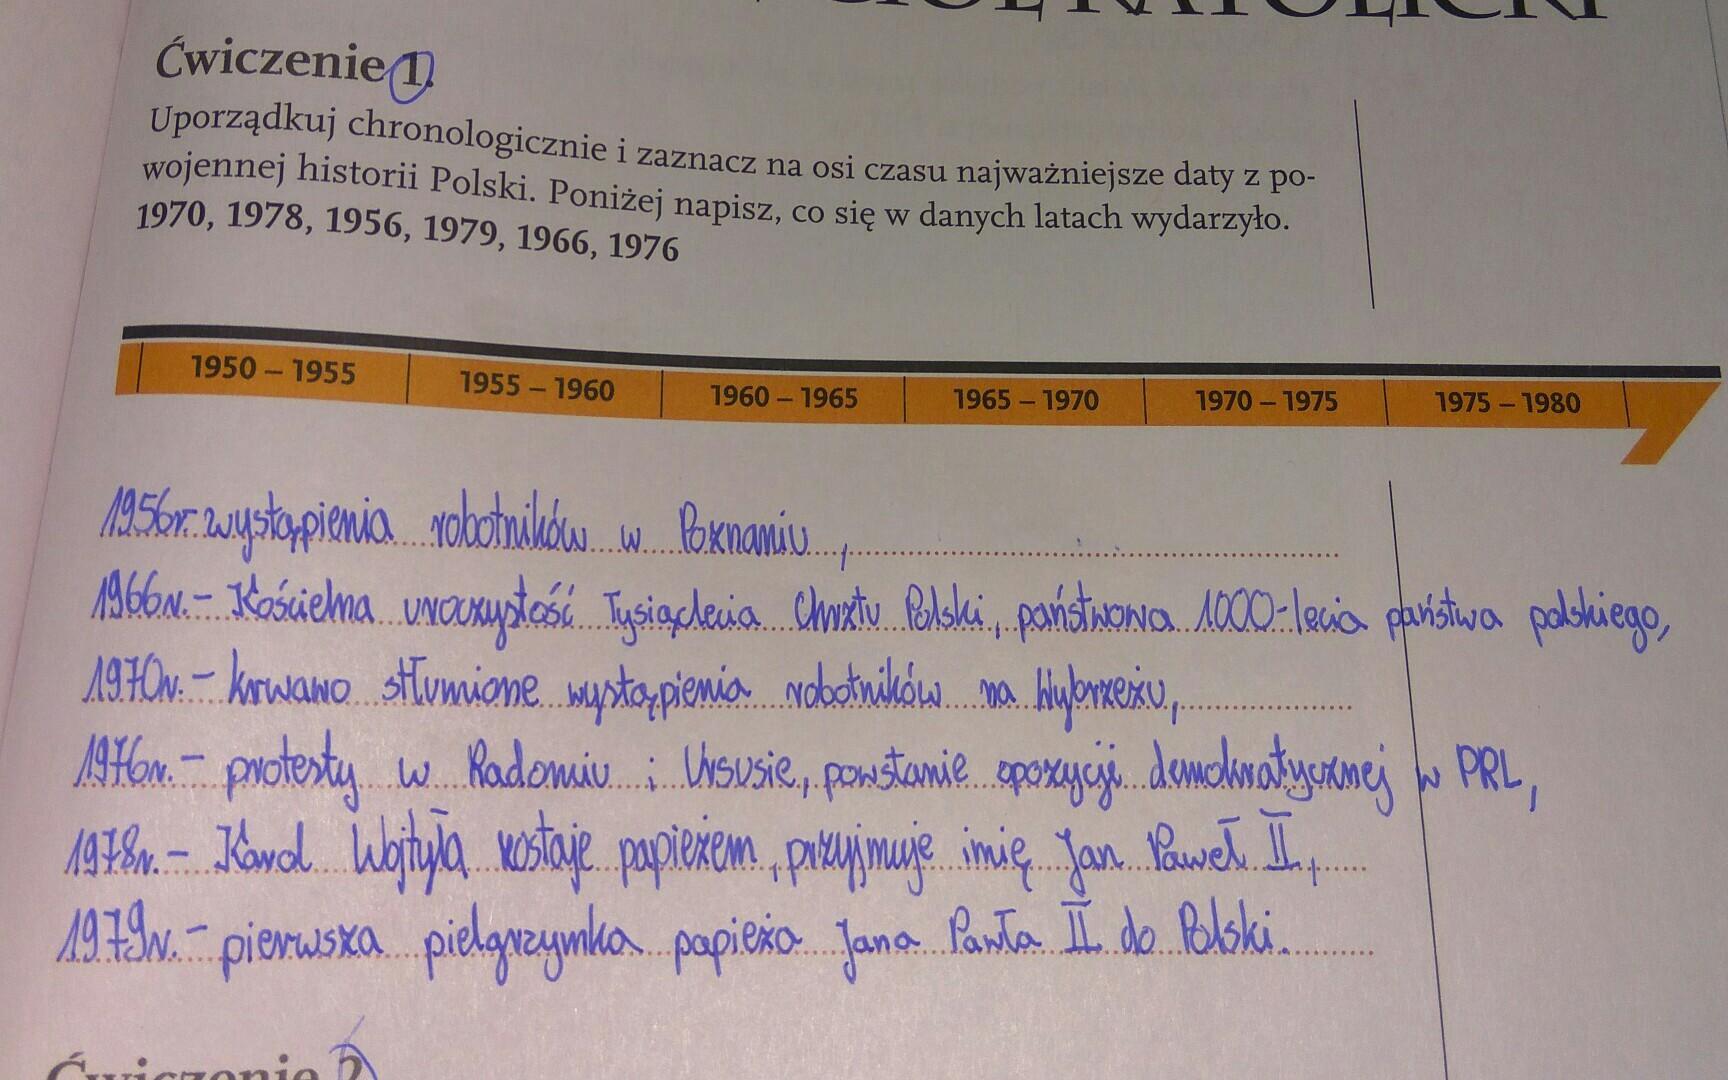 Ćwiczenie 1.
Uporządkuj chronologicznie i zaznacz na osi czasu najważniejsze daty z po-
wojennej historii Polski. Poniżej napisz, co się w danych latach wydarzyło.
1970, 1978, 1956, 1979, 1966, 1976
1950 – 1955 1955 – 1960 1960 – 1965 1965 – 1970 1970 – 1975 1975 – 1980
1956r. wystąpienia robotników w Poznaniu,
1966r. – Kościelna uroczystość Tysiąclecia Chrztu Polski, państwowa 1000-lecia państwa polskiego,
1970r. – krwawo stłumione wystąpienia robotników na Wybrzeżu,
1976r. – protesty w Radomiu i Ursusie, powstanie opozycji demokratycznej w PRL,
1978r. – Karol Wojtyła zostaje papieżem, przyjmuje imię Jan Paweł II,
1979r. – pierwsza pielgrzymka papieża Jana Pawła II do Polski.
Ćwiczenie 2